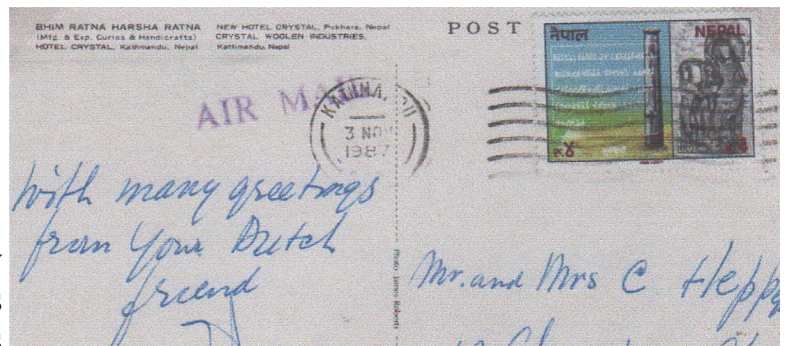 BHIM RATNA HARSHA RATNA
(Mfg. & Exp. Curios & Handicrafts)
HOTEL CRYSTAL, Kathmandu, Nepal
NEW HOTEL CRYSTAL, Pokhara, Nepal
CRYSTAL WOOLEN INDUSTRIES,
Kathmandu, Nepal
POST
नेपाल
NEPAL
रु४
AIR MAIL
KATHMANDU
3 NOV
1987
With many greetings
from Your Dutch
friend
Photo: James Roberts
Mr. and Mrs C Heppy